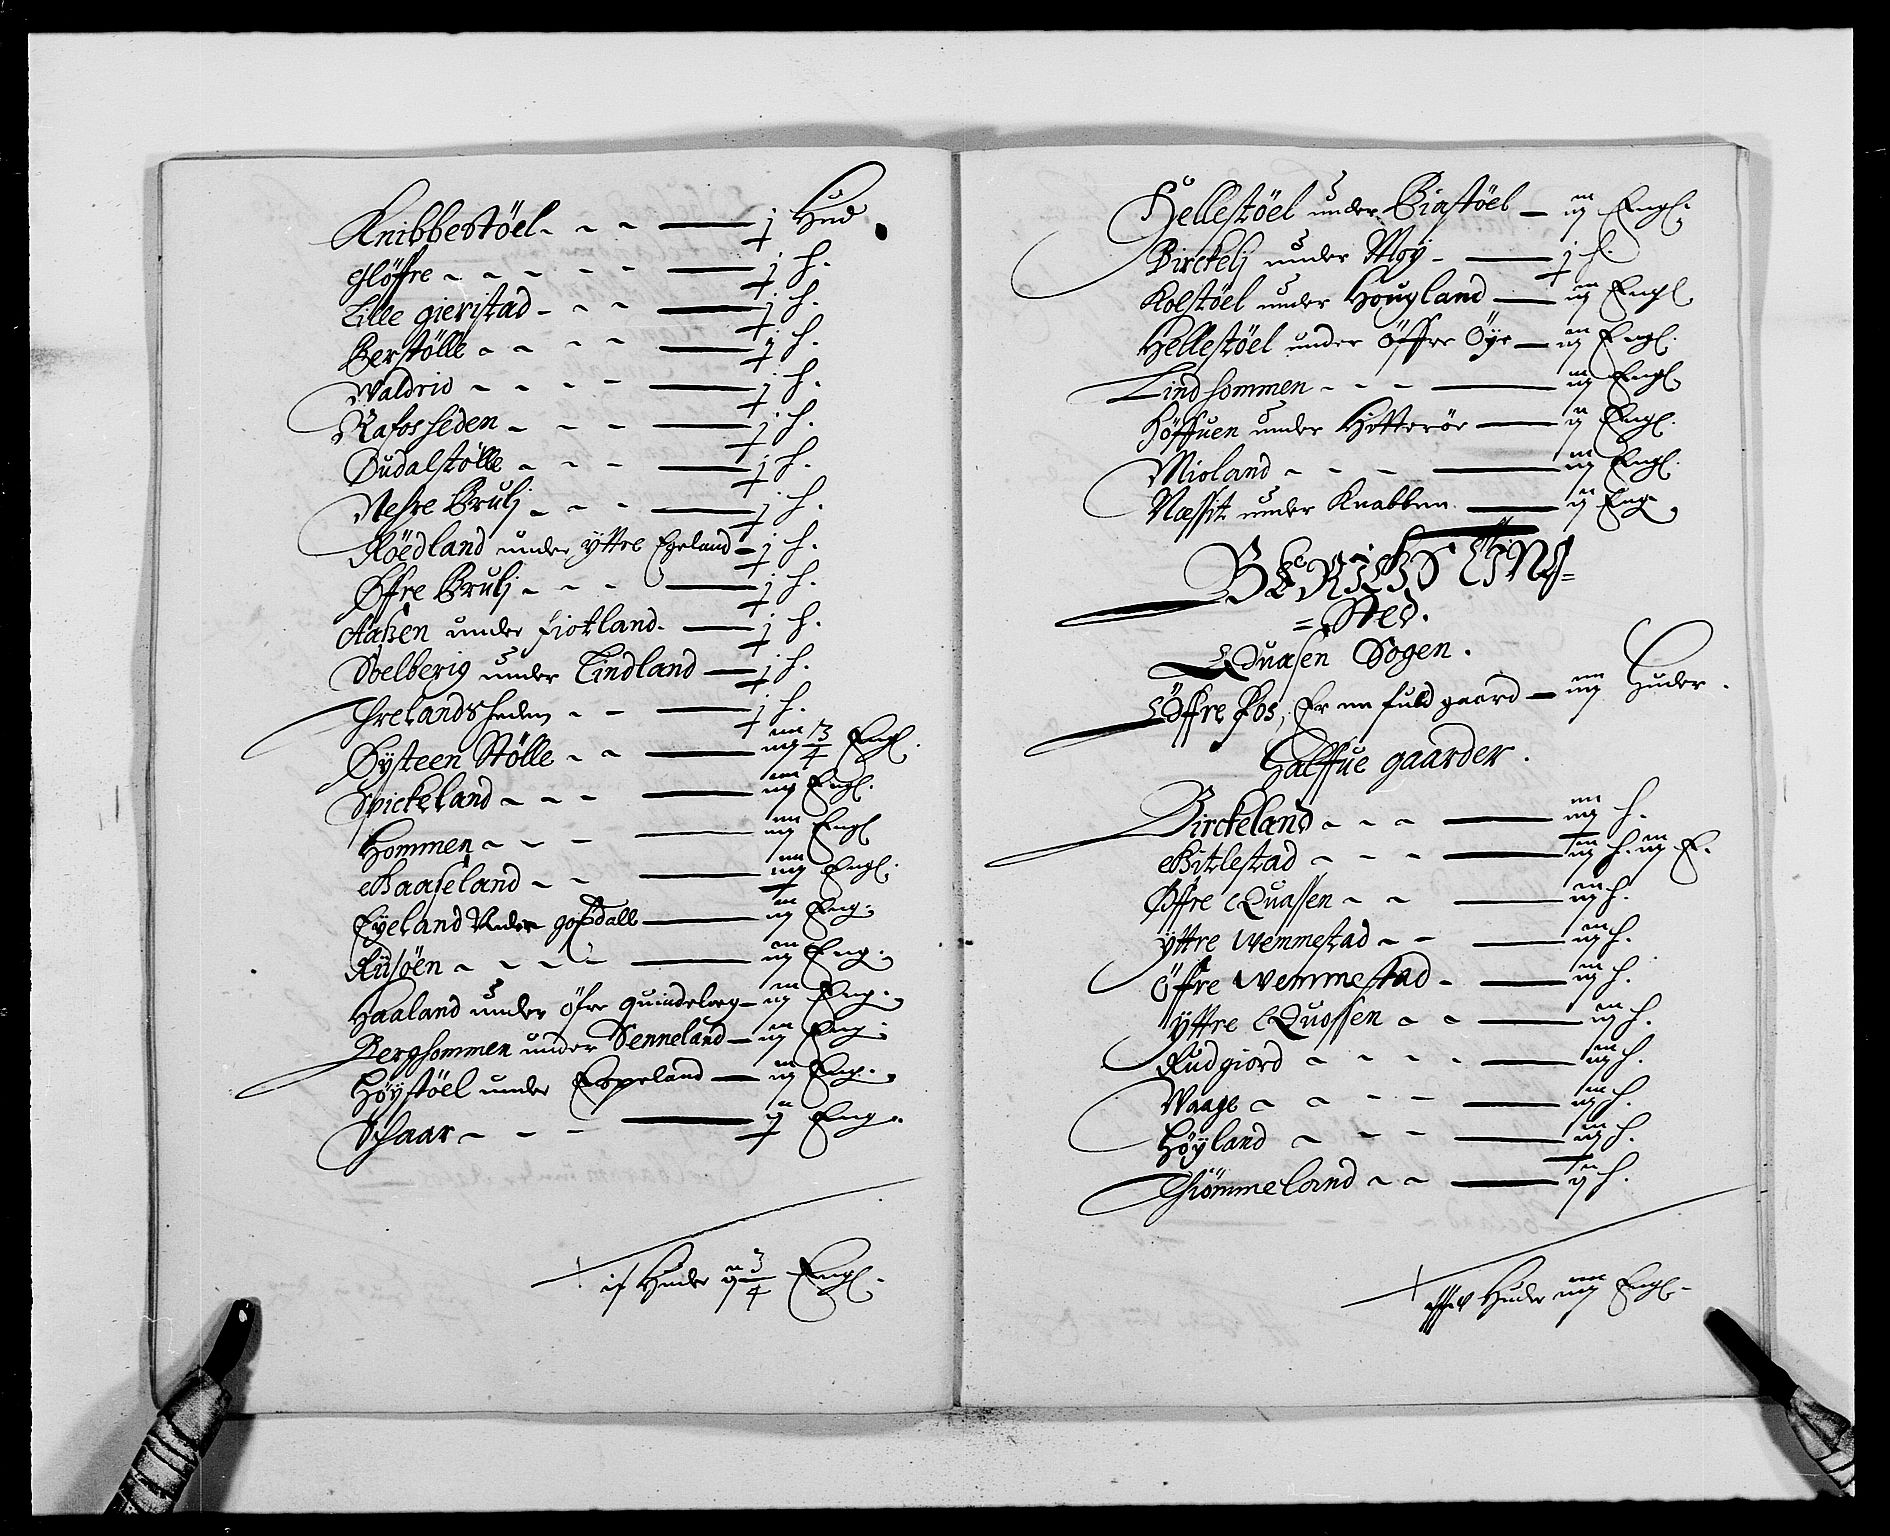 Knibbestöel - - - — j Hud
Glöffre - - - - - — j h.
Lille gieristad - - - — j h.
Berstölle - - - - — j h.
Waldrio - - - - — j h.
Rafosheden - - - - — j h.
Dudalstölle - - - — j h.
Nesre Brulj - - - — j h.
Röedland under yttre Egeland - j h.
Øffre Brulj - - - — j h.
Aaßen under fiotland. — j h.
Soelberig under Lindland — j h.
Threlandsheden - - — j h.
Øysteen Stölle - - — iij 3/4 Engl.
Spickeland - - - — iiij Engl.
Hommen - - - — iiij Engl
Baaseland - - — iiij Engl.
Eyeland Under gosdall — iij Eng.
Rusöen - - - - — iij Eng.
Haaland under öfre quindelog - iij Eng.
Berghommen under Senneland — iij Eng:
Höystöel under Espeland — iij Eng.
Schaar - - - — ij Eng.
Huder 3/4 Engl.
Hellestöel under Birstöel — iij Engl.
Birckelj under Moy - — j h
Kolstöel under Hougland — iij Engl
Hellestöel under Öffre Öye — iij Engl.
Lindhommen - - - — iij Engl
Höffuen under Hitteröe — ij Engl.
Mioland - - - — iij Engl.
Næssit under Knabben. — ij Eng
BERIGHS TING=
=Sted.
Quasen Sogen.
Öffre Fos, Er en fuld gaard — iiij Huder.
Halffue gaarder.
Birckeland - - - — iiij h.
Bitlestad - - - — iij h. iij E.
Øffre Quassen - - — iij h.
yttre Wemmestad - - — iij h.
Öffre Wemmestad - — iij h.
yttre Quossen - - — iij h.
Rudgiord - - - - — iij h.
Waage - - - - — iij h.
Höyland - - - - — iij h.
Thiömmeland - - — ij h.
Huder iiij Engl.